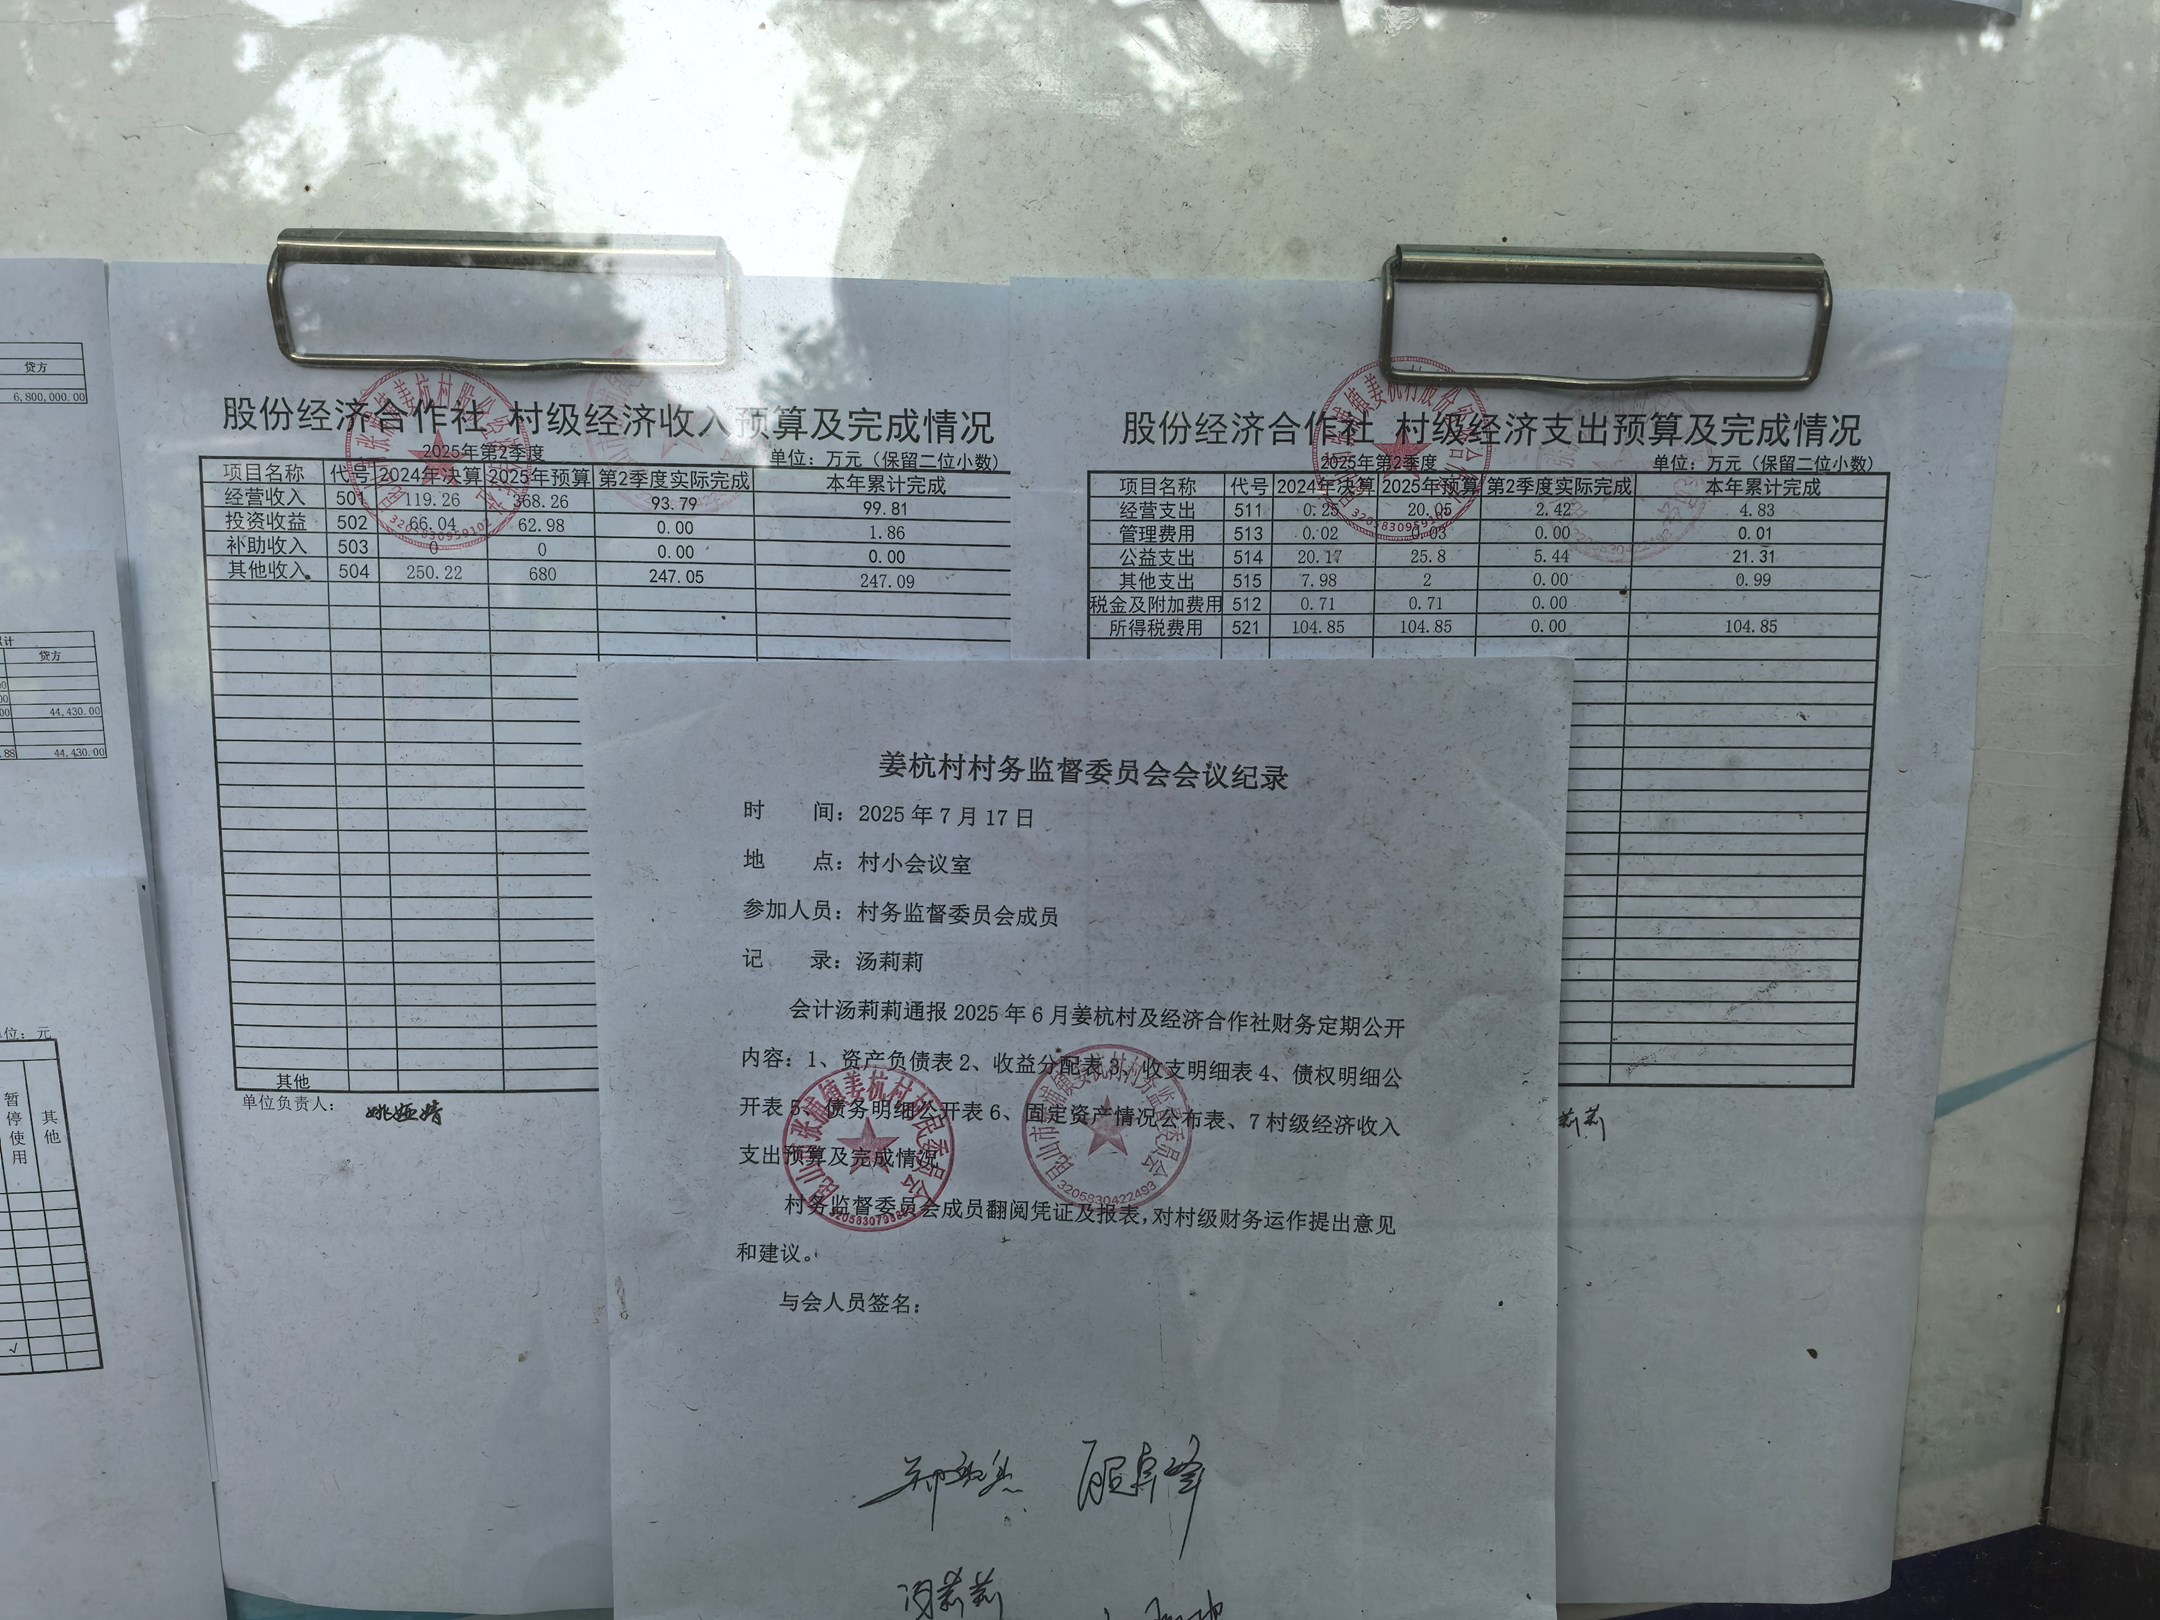 贷方
6,800,000.00
贷方
44,430.00
44,430.00
位：元
暂停使用
其他
√
股份经济合作社 村级经济收入预算及完成情况
2025年第2季度 单位：万元（保留二位小数）
项目名称 代号 2024年决算 2025年预算 第2季度实际完成 本年累计完成
经营收入 501 119.26 368.26 93.79 99.81
投资收益 502 66.04 62.98 0.00 1.86
补助收入 503 0 0 0.00 0.00
其他收入 504 250.22 680 247.05 247.09
其他
单位负责人：
股份经济合作社 村级经济支出预算及完成情况
2025年第2季度 单位：万元（保留二位小数）
项目名称 代号 2024年决算 2025年预算 第2季度实际完成 本年累计完成
经营支出 511 0.25 20.05 2.42 4.83
管理费用 513 0.02 0.03 0.00 0.01
公益支出 514 20.17 25.8 5.44 21.31
其他支出 515 7.98 2 0.00 0.99
税金及附加费用 512 0.71 0.71 0.00
所得税费用 521 104.85 104.85 0.00 104.85
莉莉
姜杭村村务监督委员会会议纪录
时 间：2025 年 7 月 17 日
地 点：村小会议室
参加人员：村务监督委员会成员
记 录：汤莉莉
会计汤莉莉通报 2025 年 6 月姜杭村及经济合作社财务定期公开
内容：1、资产负债表 2、收益分配表 3、收支明细表 4、债权明细公
开表 5、债务明细公开表 6、固定资产情况公布表、7 村级经济收入
支出预算及完成情况
村务监督委员会成员翻阅凭证及报表，对村级财务运作提出意见
和建议。
与会人员签名：
昆山市张浦镇姜杭村村民委员会
昆山市张浦镇姜杭村村务监督委员会
3205830422493
汤莉莉